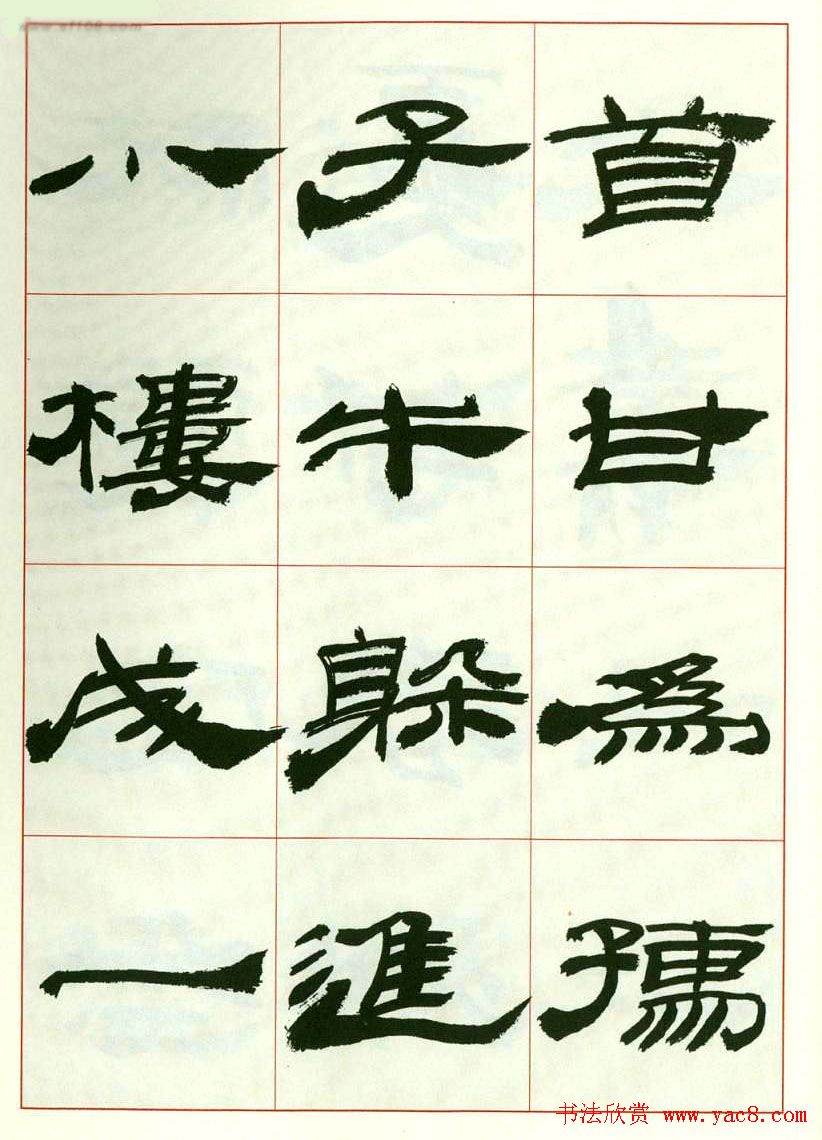 www.sf108.com
首甘為孺
子牛躲進
小樓成一
书法欣赏 www.yac8.com